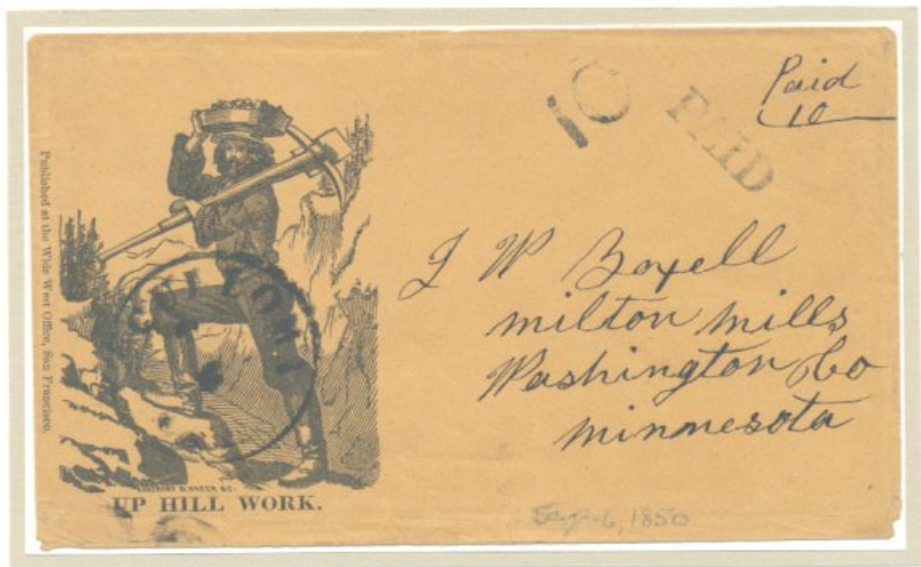 Published at the Wide West Office, San Francisco.
UP HILL WORK.
10
PAID
Paid
10
J W Boyell
milton mills
Washington Co
minnesota
1850